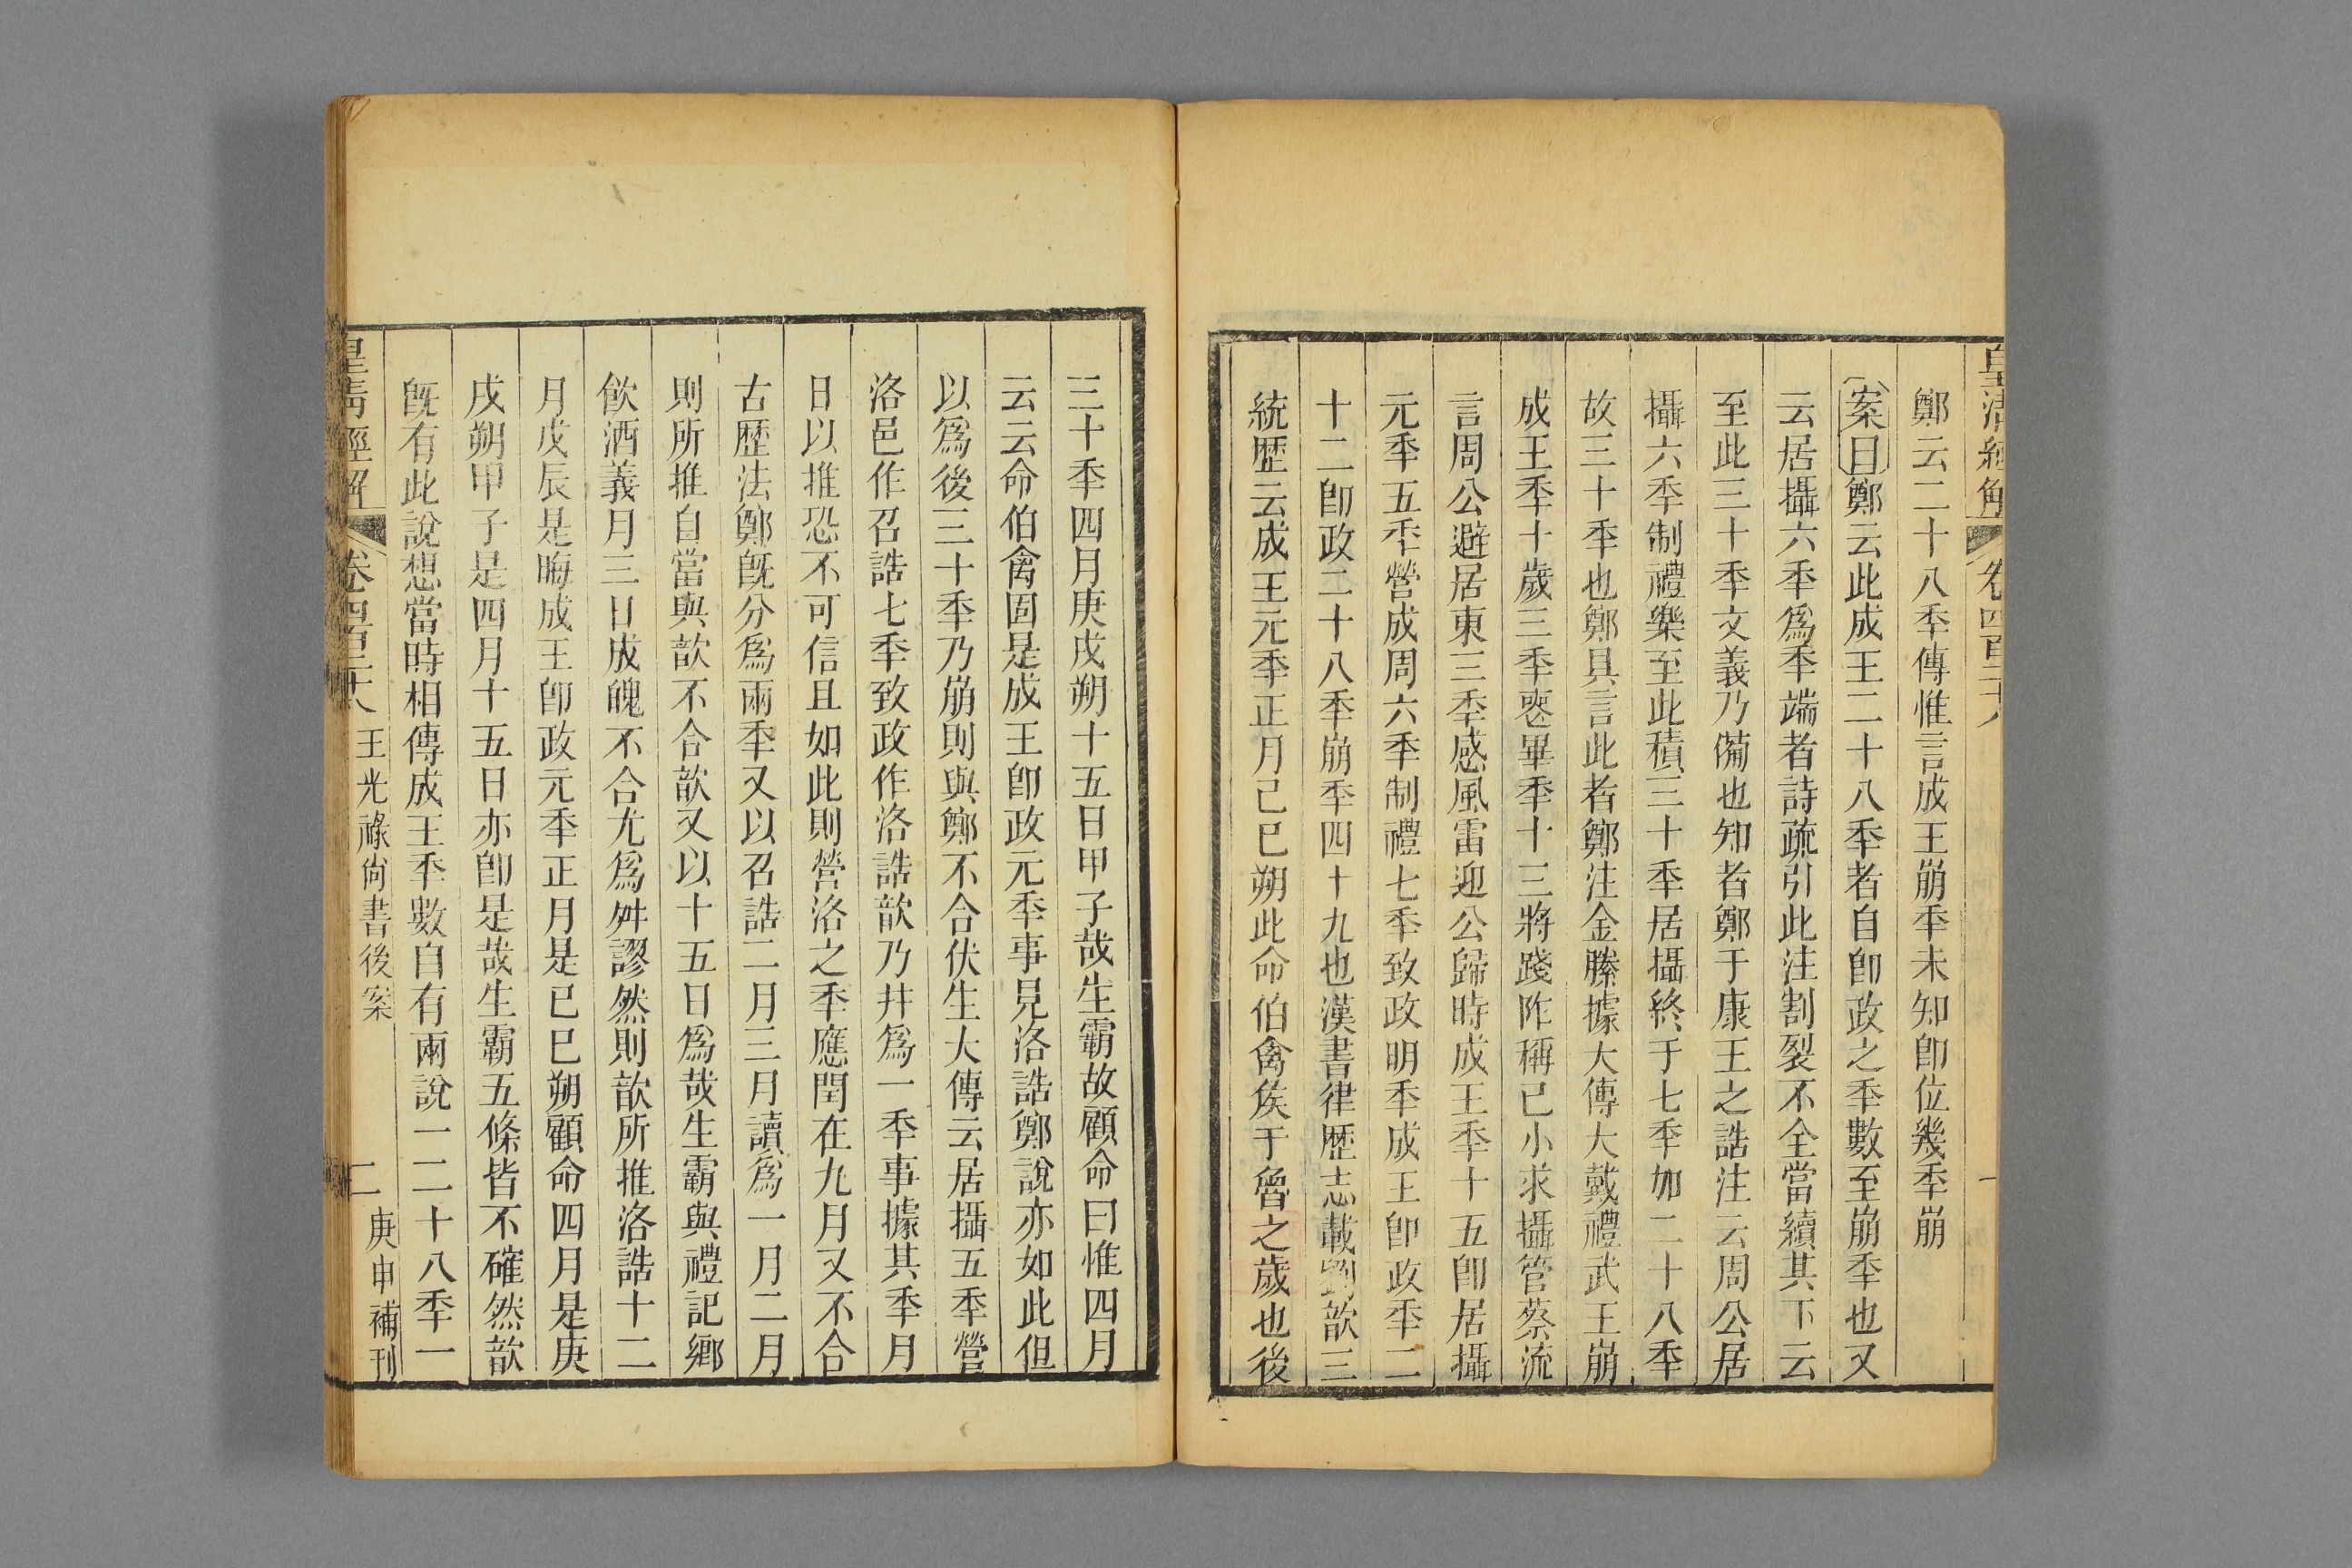 皇清經解 卷四百二十八 一
鄭云二十八秊傳惟言成王崩秊未知卽位幾秊崩
案曰鄭云此成王二十八秊者自卽政之秊數至崩秊也又
云居攝六秊爲秊端者詩疏引此注割裂不全當續其下云
至此三十秊文義乃僃也知者鄭于康王之誥注云周公居
攝六秊制禮樂至此積三十秊居攝終于七秊加二十八秊
故三十秊也鄭具言此者鄭注金縢據大傳大戴禮武王崩
成王秊十歲三秊喪畢秊十三將踐阼稱已小求攝管蔡流
言周公避居東三秊感風雷迎公歸時成王秊十五卽居攝
元秊五秊營成周六秊制禮七秊致政明秊成王卽政秊二
十二卽政二十八秊崩秊四十九也漢書律歷志載劉歆三
統歷云成王元秊正月己巳朔此命伯禽矦于魯之歲也後
三十秊四月庚戌朔十五日甲子哉生霸故顧命曰惟四月
云云命伯禽固是成王卽政元秊事見洛誥鄭說亦如此但
以爲後三十秊乃崩則與鄭不合伏生大傳云居攝五秊營
洛邑作召誥七秊致政作洛誥歆乃幷爲一秊事據其秊月
日以推恐不可信且如此則營洛之秊應閏在九月又不合
古歷法鄭旣分爲兩秊又以召誥二月三月讀爲一月二月
則所推自當與歆不合歆又以十五日爲哉生霸與禮記鄉
飮酒義月三日成魄不合尤爲舛謬然則歆所推洛誥十二
月戊辰是晦成王卽政元秊正月是己巳朔顧命四月是庚
戌朔甲子是四月十五日亦卽是哉生霸五條皆不確然歆
旣有此說想當時相傳成王秊數自有兩說一二十八秊一
皇淸經解 卷四百二十八 王光祿尙書後案 二 庚申補刊